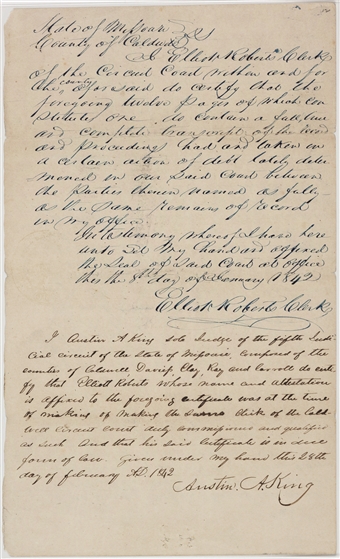 State of Missouri }
County of Caldwell } S
I Elliott Roberts Clerk
of the Circuit Court within and for
the county aforesaid do certify that the
foregoing twelve pages of which con
stitutes one do contain a full, true
and complete transcript of the record
and proceedings had and taken in
a certain action of debt lately deter
mined in our said Court between
the Parties therein named as fully
as the same remains of record
in my office
In testimony whereof I have here
unto Set my hand and affixed
the Seal of said Court at office
this the 8th day of January 1842
Elliott Roberts Clerk
I Austin A King sole Judge of the fifth Judi
cial circuit of the State of Missouri, composed of the
counties of Caldwell Daviess Clay Ray and Carroll do certi
fy that Elliott Roberts whose name and attestation
is affixed to the foregoing certificate was at the time
of making of making the same clerk of the Cald
well Circuit court duly commissioned and qualified
as such And that his said Certificate is in due
form of law. Given under my hand this 28th
day of february A.D. 1842
Austin A. King